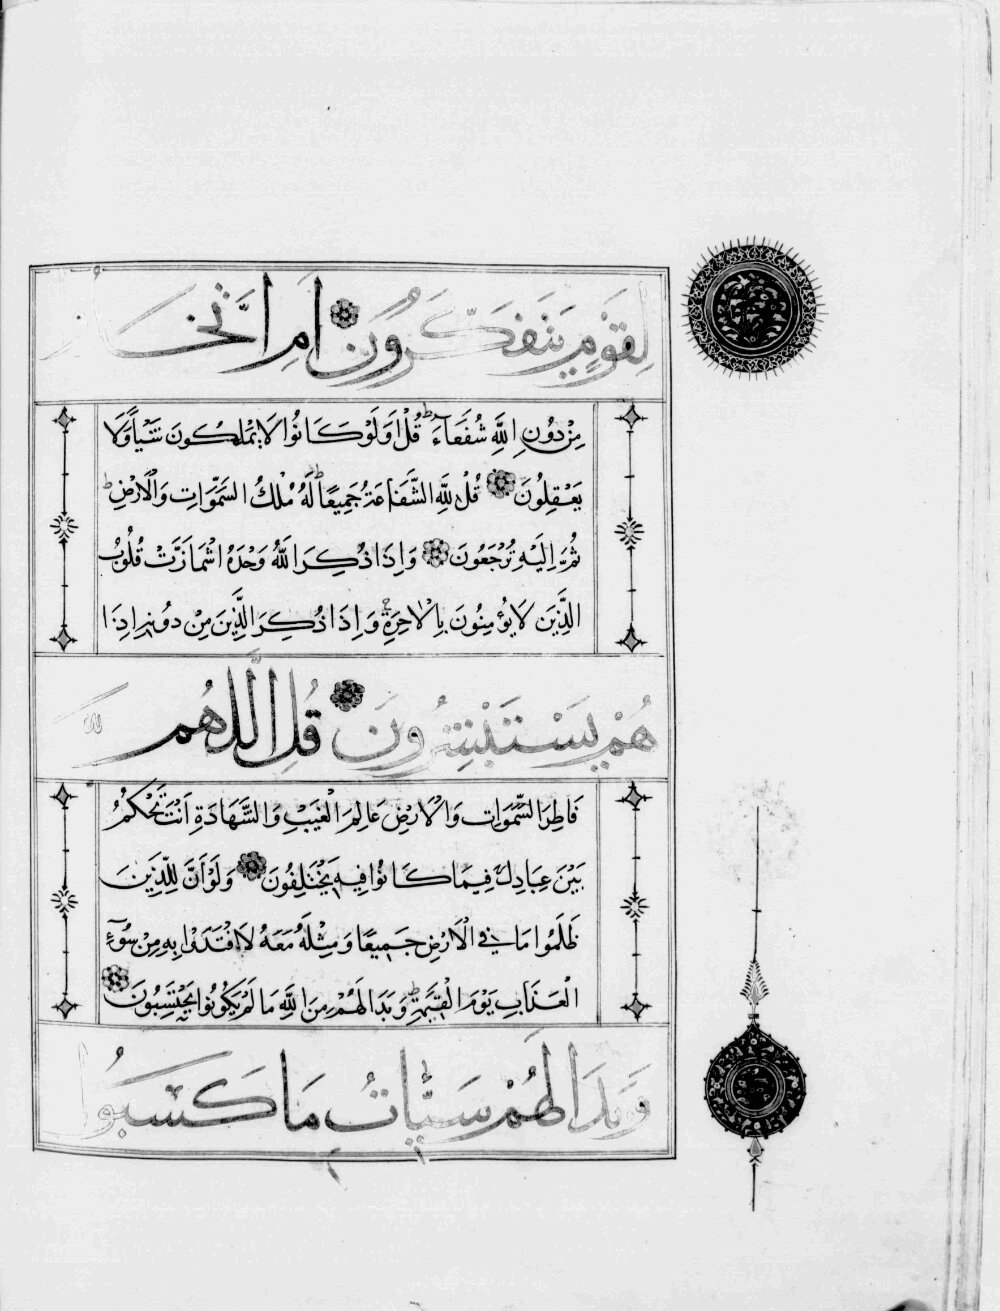 لِقَوْمٍ يَتَفَكَّرُونَ اَمِ اتَّخَذُوا
مِنْ دُونِ اللَّهِ شُفَعَاءَ قُلْ اَوَلَوْ كَانُوا لَا يَمْلِكُونَ شَيْاً وَلَا
يَعْقِلُونَ قُلْ لِلَّهِ الشَّفَاعَةُ جَمِيعًا لَهُ مُلْكُ السَّمَوَاتِ وَالْاَرْضِ
ثُمَّ اِلَيْهِ تُرْجَعُونَ وَاِذَا ذُكِرَ اللَّهُ وَحْدَهُ اشْمَازَّتْ قُلُوبُ
الَّذِينَ لَا يُؤْمِنُونَ بِالْاٰخِرَةِ وَاِذَا ذُكِرَ الَّذِينَ مِنْ دُونِهِ اِذَا
هُمْ يَسْتَبْشِرُونَ قُلِ اللَّهُمَّ
فَاطِرَ السَّمَوَاتِ وَالْاَرْضِ عَالِمَ الْغَيْبِ وَالشَّهَادَةِ اَنْتَ تَحْكُمُ
بَيْنَ عِبَادِكَ فِيمَا كَانُوا فِيهِ يَخْتَلِفُونَ وَلَوْ اَنَّ لِلَّذِينَ
ظَلَمُوا مَا فِي الْاَرْضِ جَمِيعًا وَمِثْلَهُ مَعَهُ لَافْتَدَوْا بِهِ مِنْ سُوءِ
الْعَذَابِ يَوْمَ الْقِيٰمَةِ وَبَدَا لَهُمْ مِنَ اللَّهِ مَا لَمْ يَكُونُوا يَحْتَسِبُونَ
وَبَدَا لَهُمْ سَيِّاٰتُ مَا كَسَبُوا